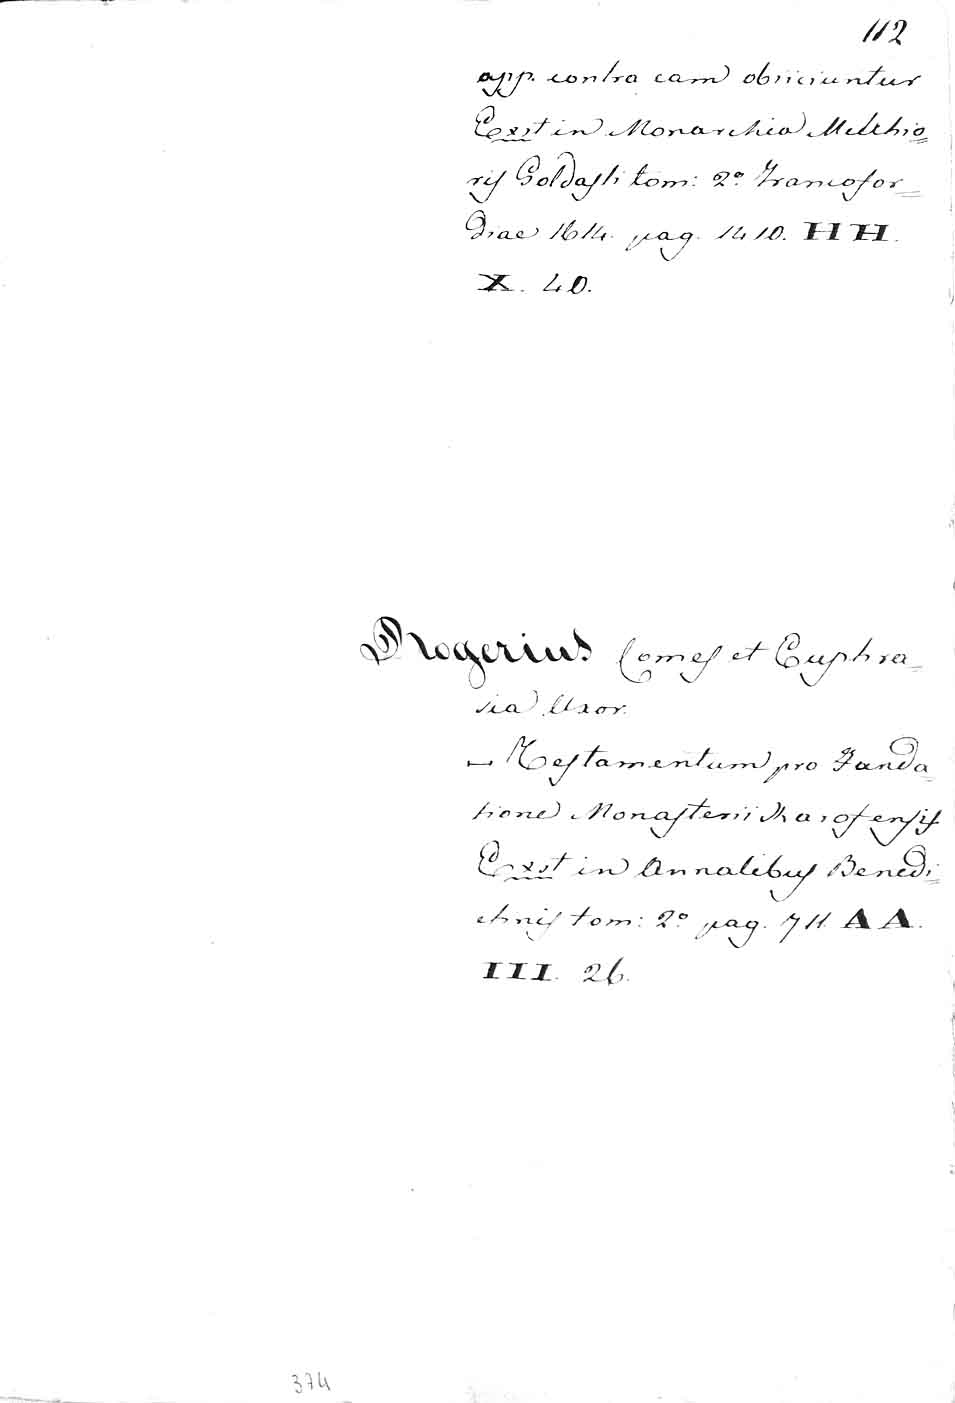 112
app. contra eam obiiciuntur
Exst in Monarchia Melchio=
ris Goldasti tom: 2º Francofor=
diae 1614. pag. 1410. HH.
X. 40.
Rogerius Comes et Euphra=
sia Uxor.
— Testamentum pro Funda=
tione Monasterii Karofensis
Exst in Annalibus Benedi=
ctinis tom: 2º pag. 711. AA.
III. 26.
374